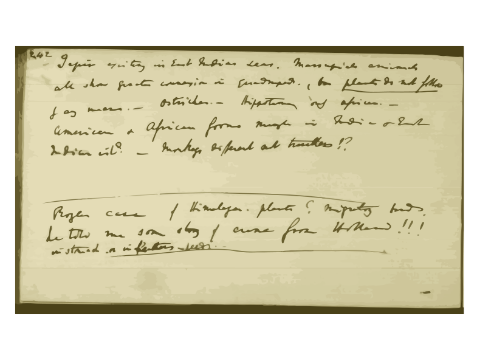 242
Tapir existing in East Indian seas. Marsupials animals
all show greater connexion in quadruped., but plants do not follow
by any means. — Ostriches. — Hippotamus only African. —
American & African forms mingle in India & East
Indian isld. — Monkeys different at
Royle's case of Himalayan plants ? migratory birds.
he told me some story of crane from Holland !!!
instead or in feathers seeds.